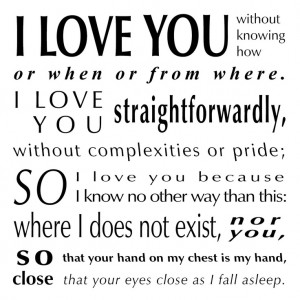 I LOVE YOU without knowing how
or when or from where.
I LOVE YOU straightforwardly,
without complexities or pride;
SO I love you because
I know no other way than this:
where I does not exist, nor you,
so that your hand on my chest is my hand,
close that your eyes close as I fall asleep.